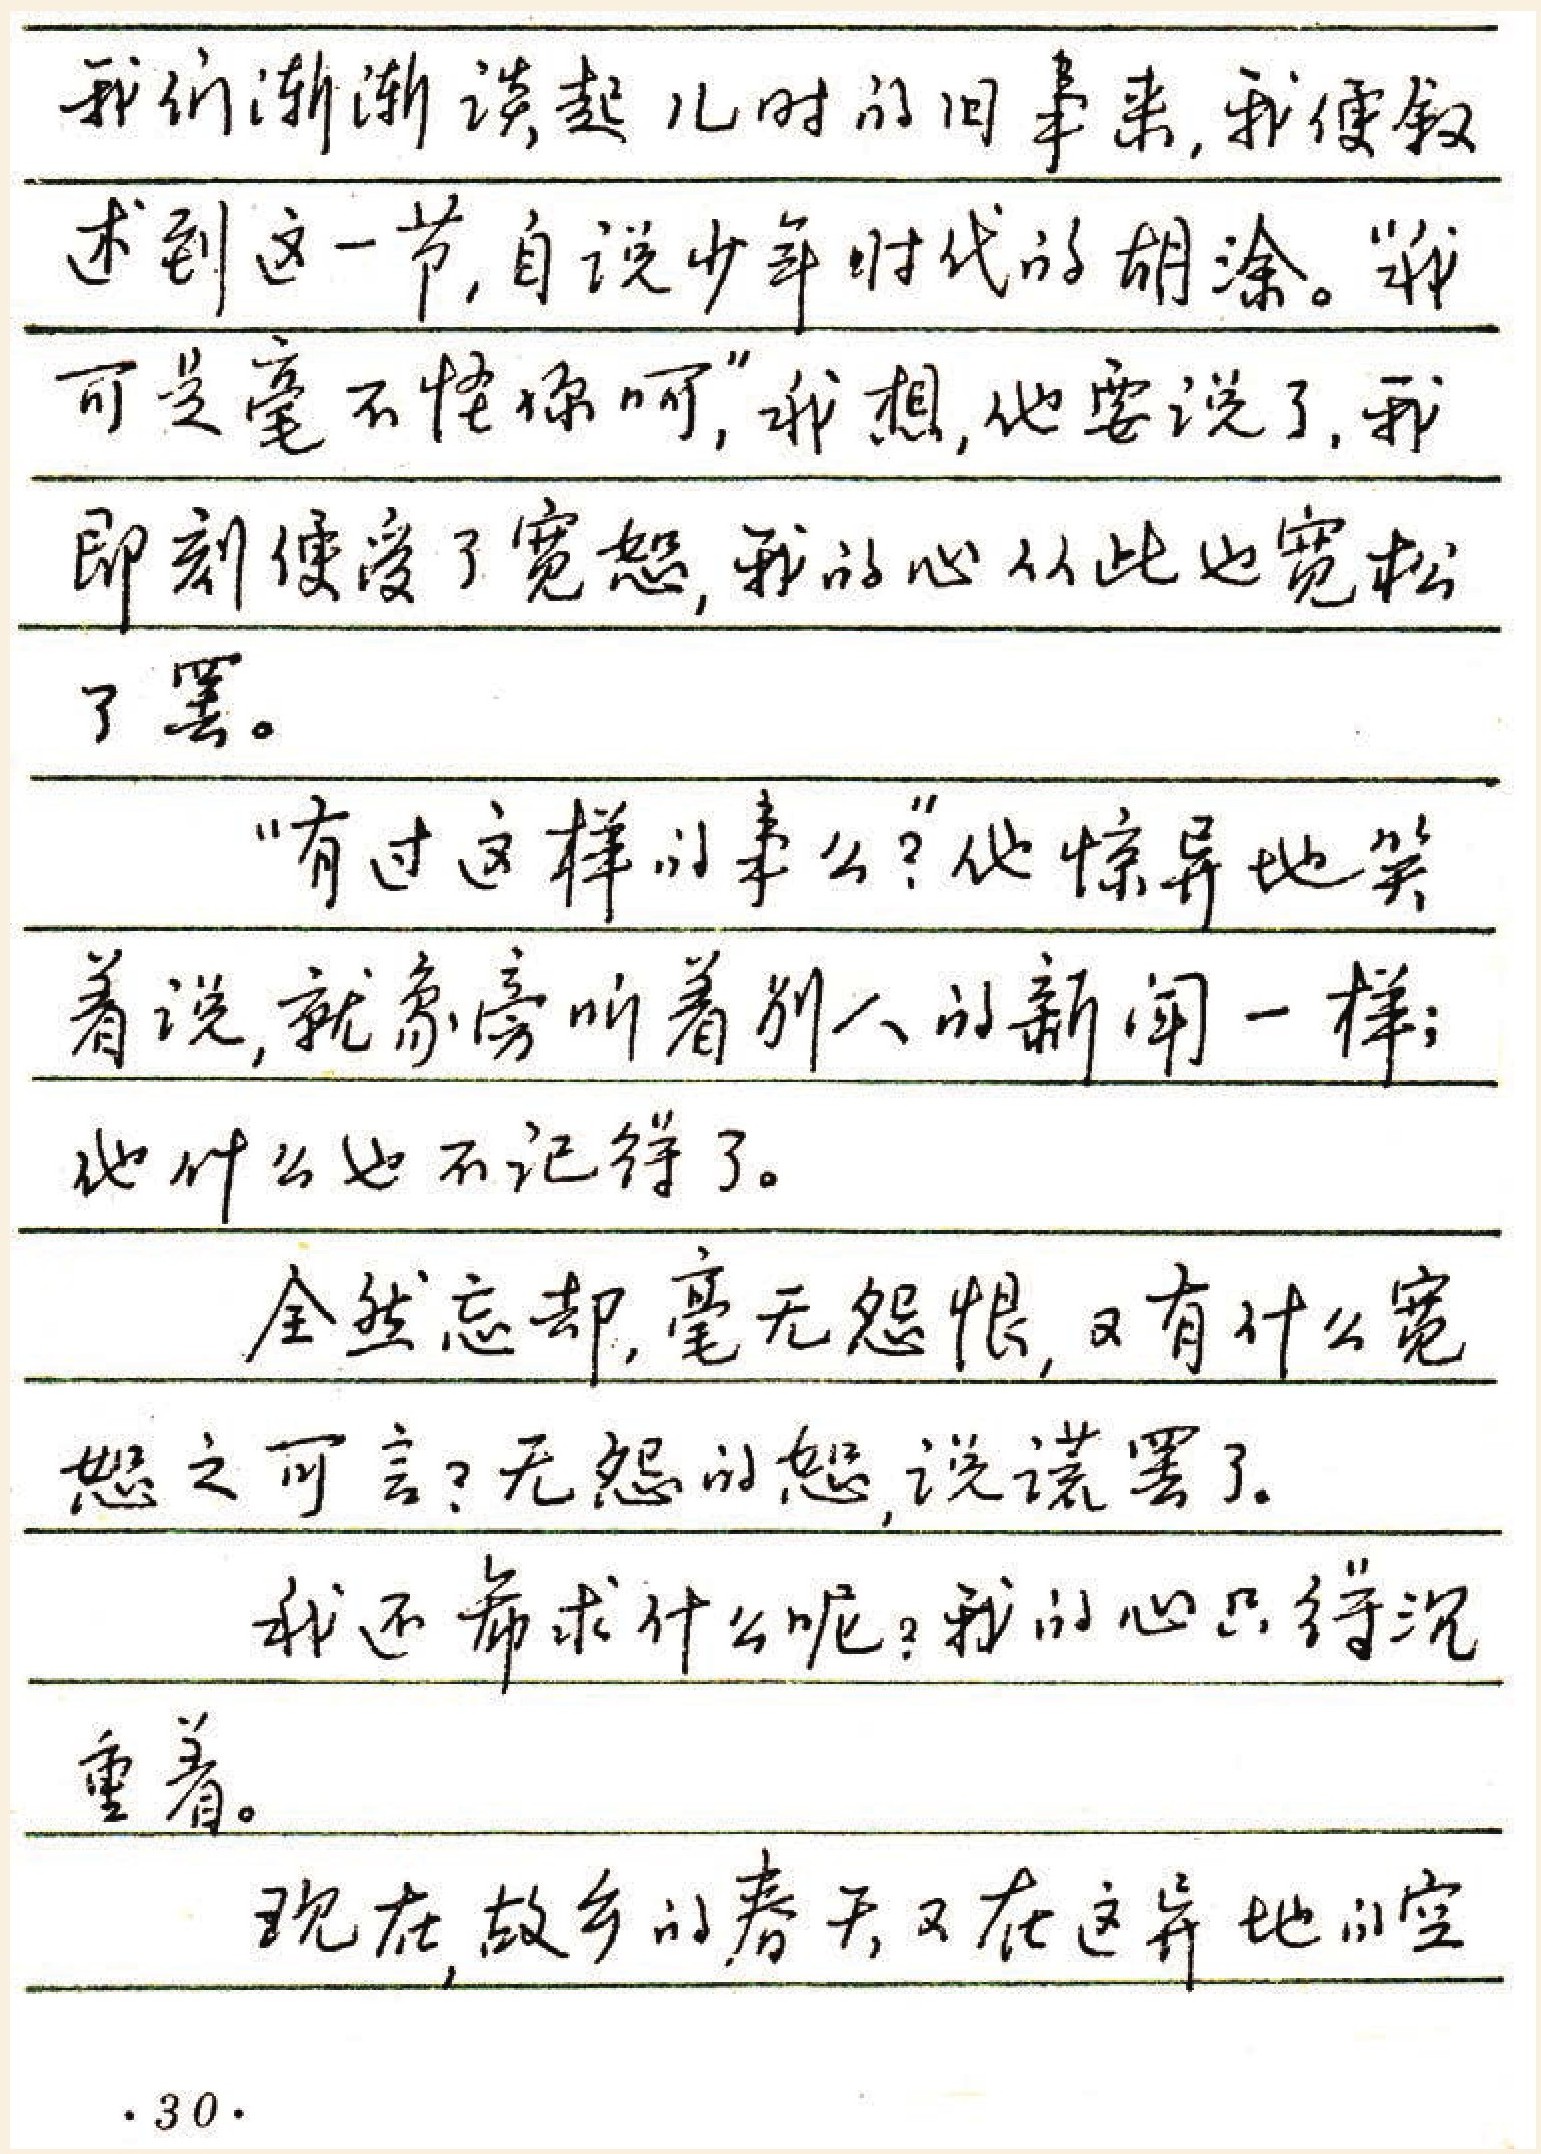 我们渐渐谈起儿时的旧事来,我便叙
述到这一节,自说少年时代的胡涂。“我
可是毫不怪你呵,”我想,他要说了,我
即刻便受了宽恕,我的心从此也宽松
了罢。
“有过这样的事么?”他惊异地笑
着说,就象旁听着别人的新闻一样;
他什么也不记得了。
全然忘却,毫无怨恨,又有什么宽
恕之可言?无怨的恕,说谎罢了。
我还希求什么呢?我的心只得沉
重着。
现在,故乡的春天又在这异地的空
·30·